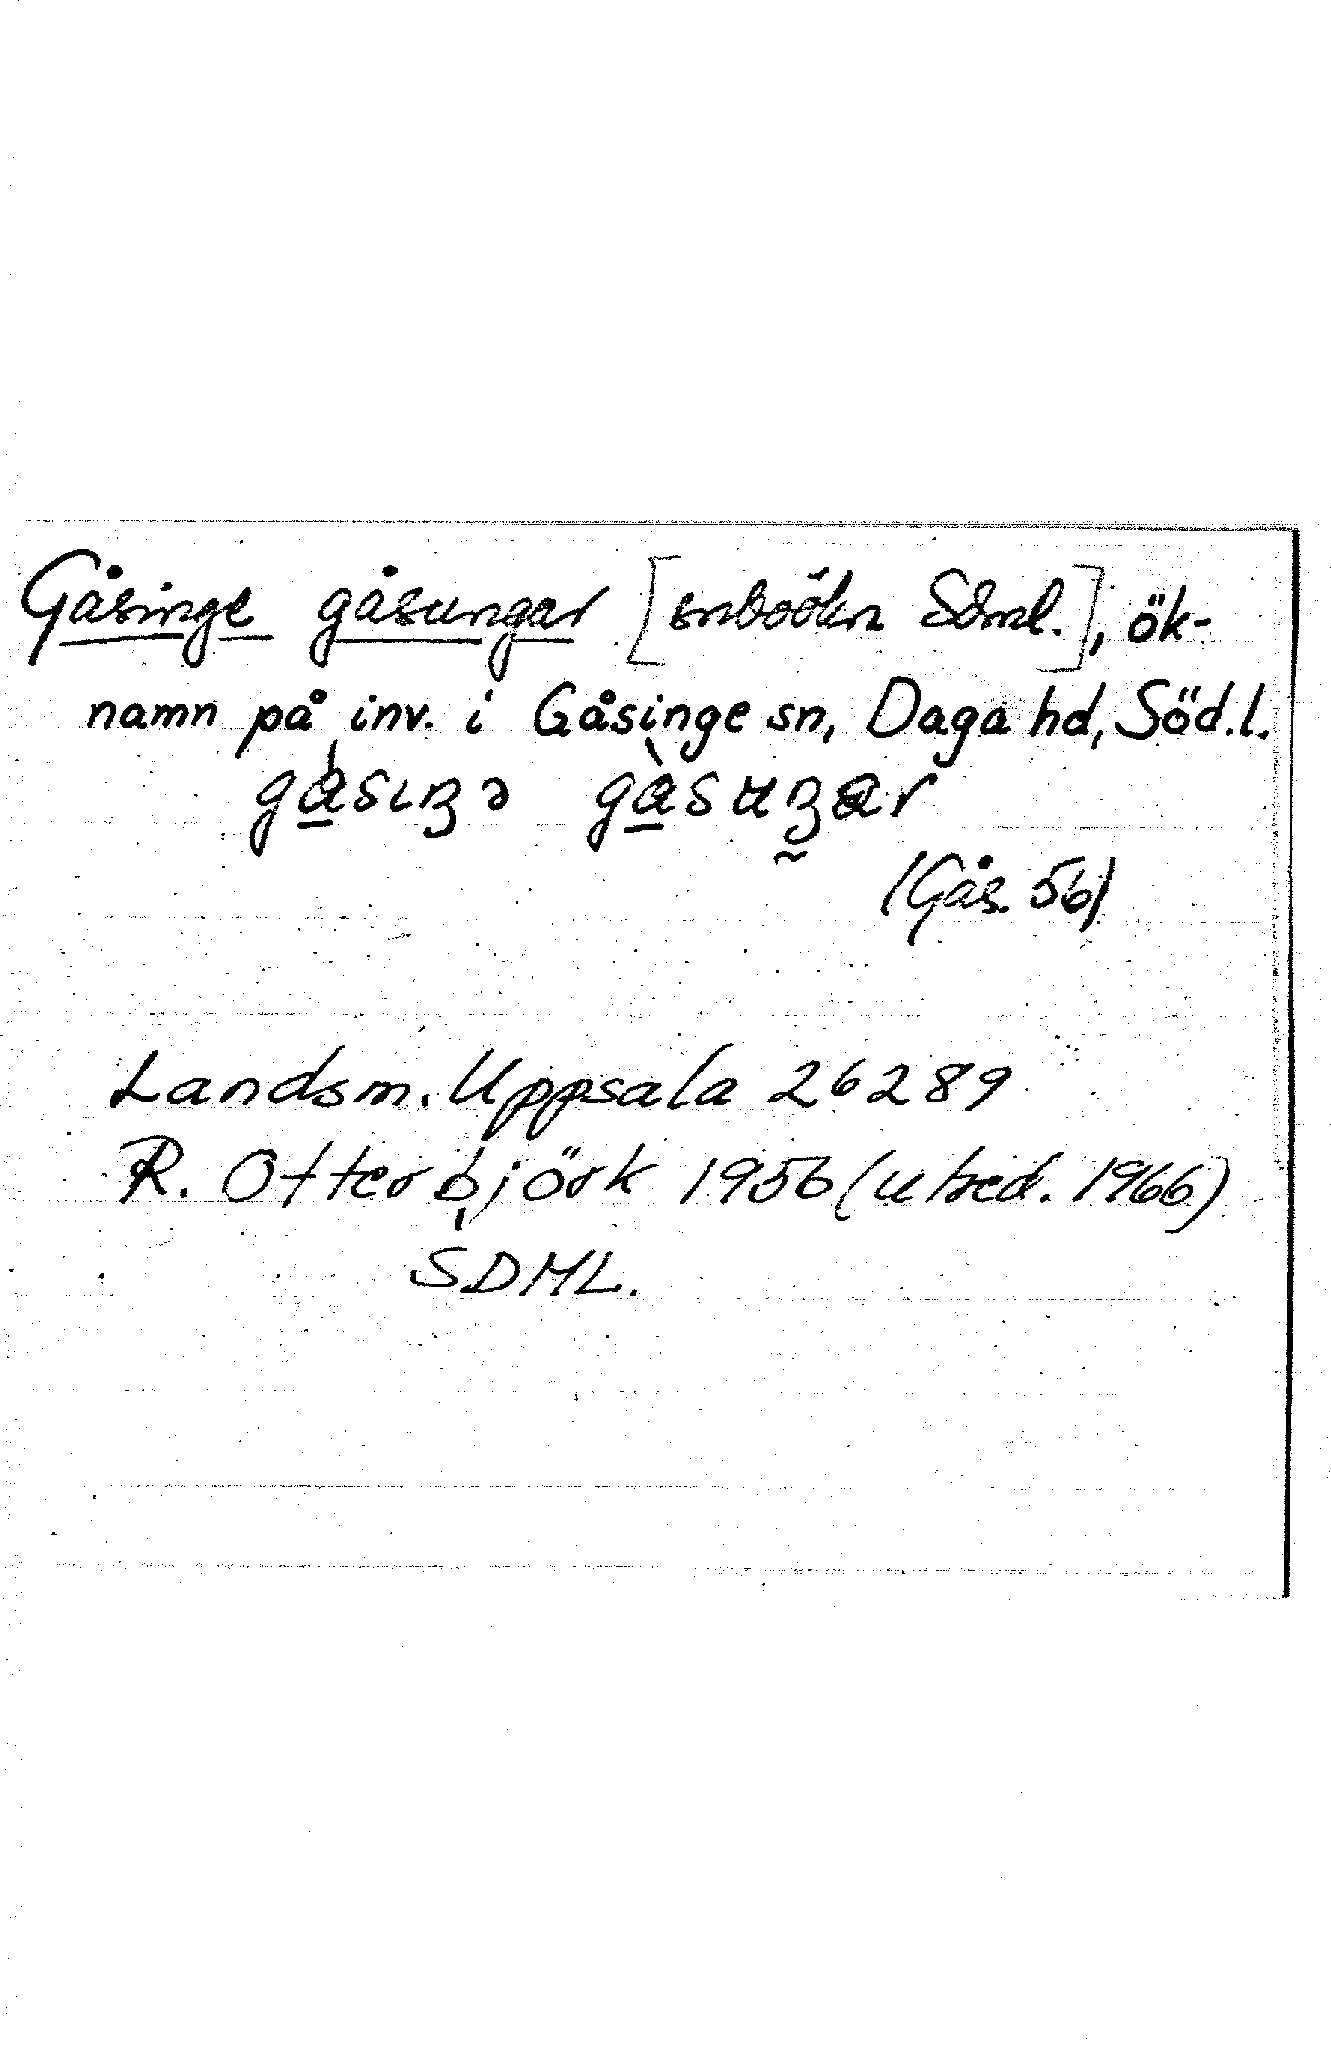 Gåsinge gåsungar [snboökn Sdml.], ök-
namn på inv. i Gåsinge sn, Daga hd, Söd.l.
(Gås. 56)
Landsm. Uppsala 26289
R. Otterbjörk 1956 (utred. 1966)
SDML.